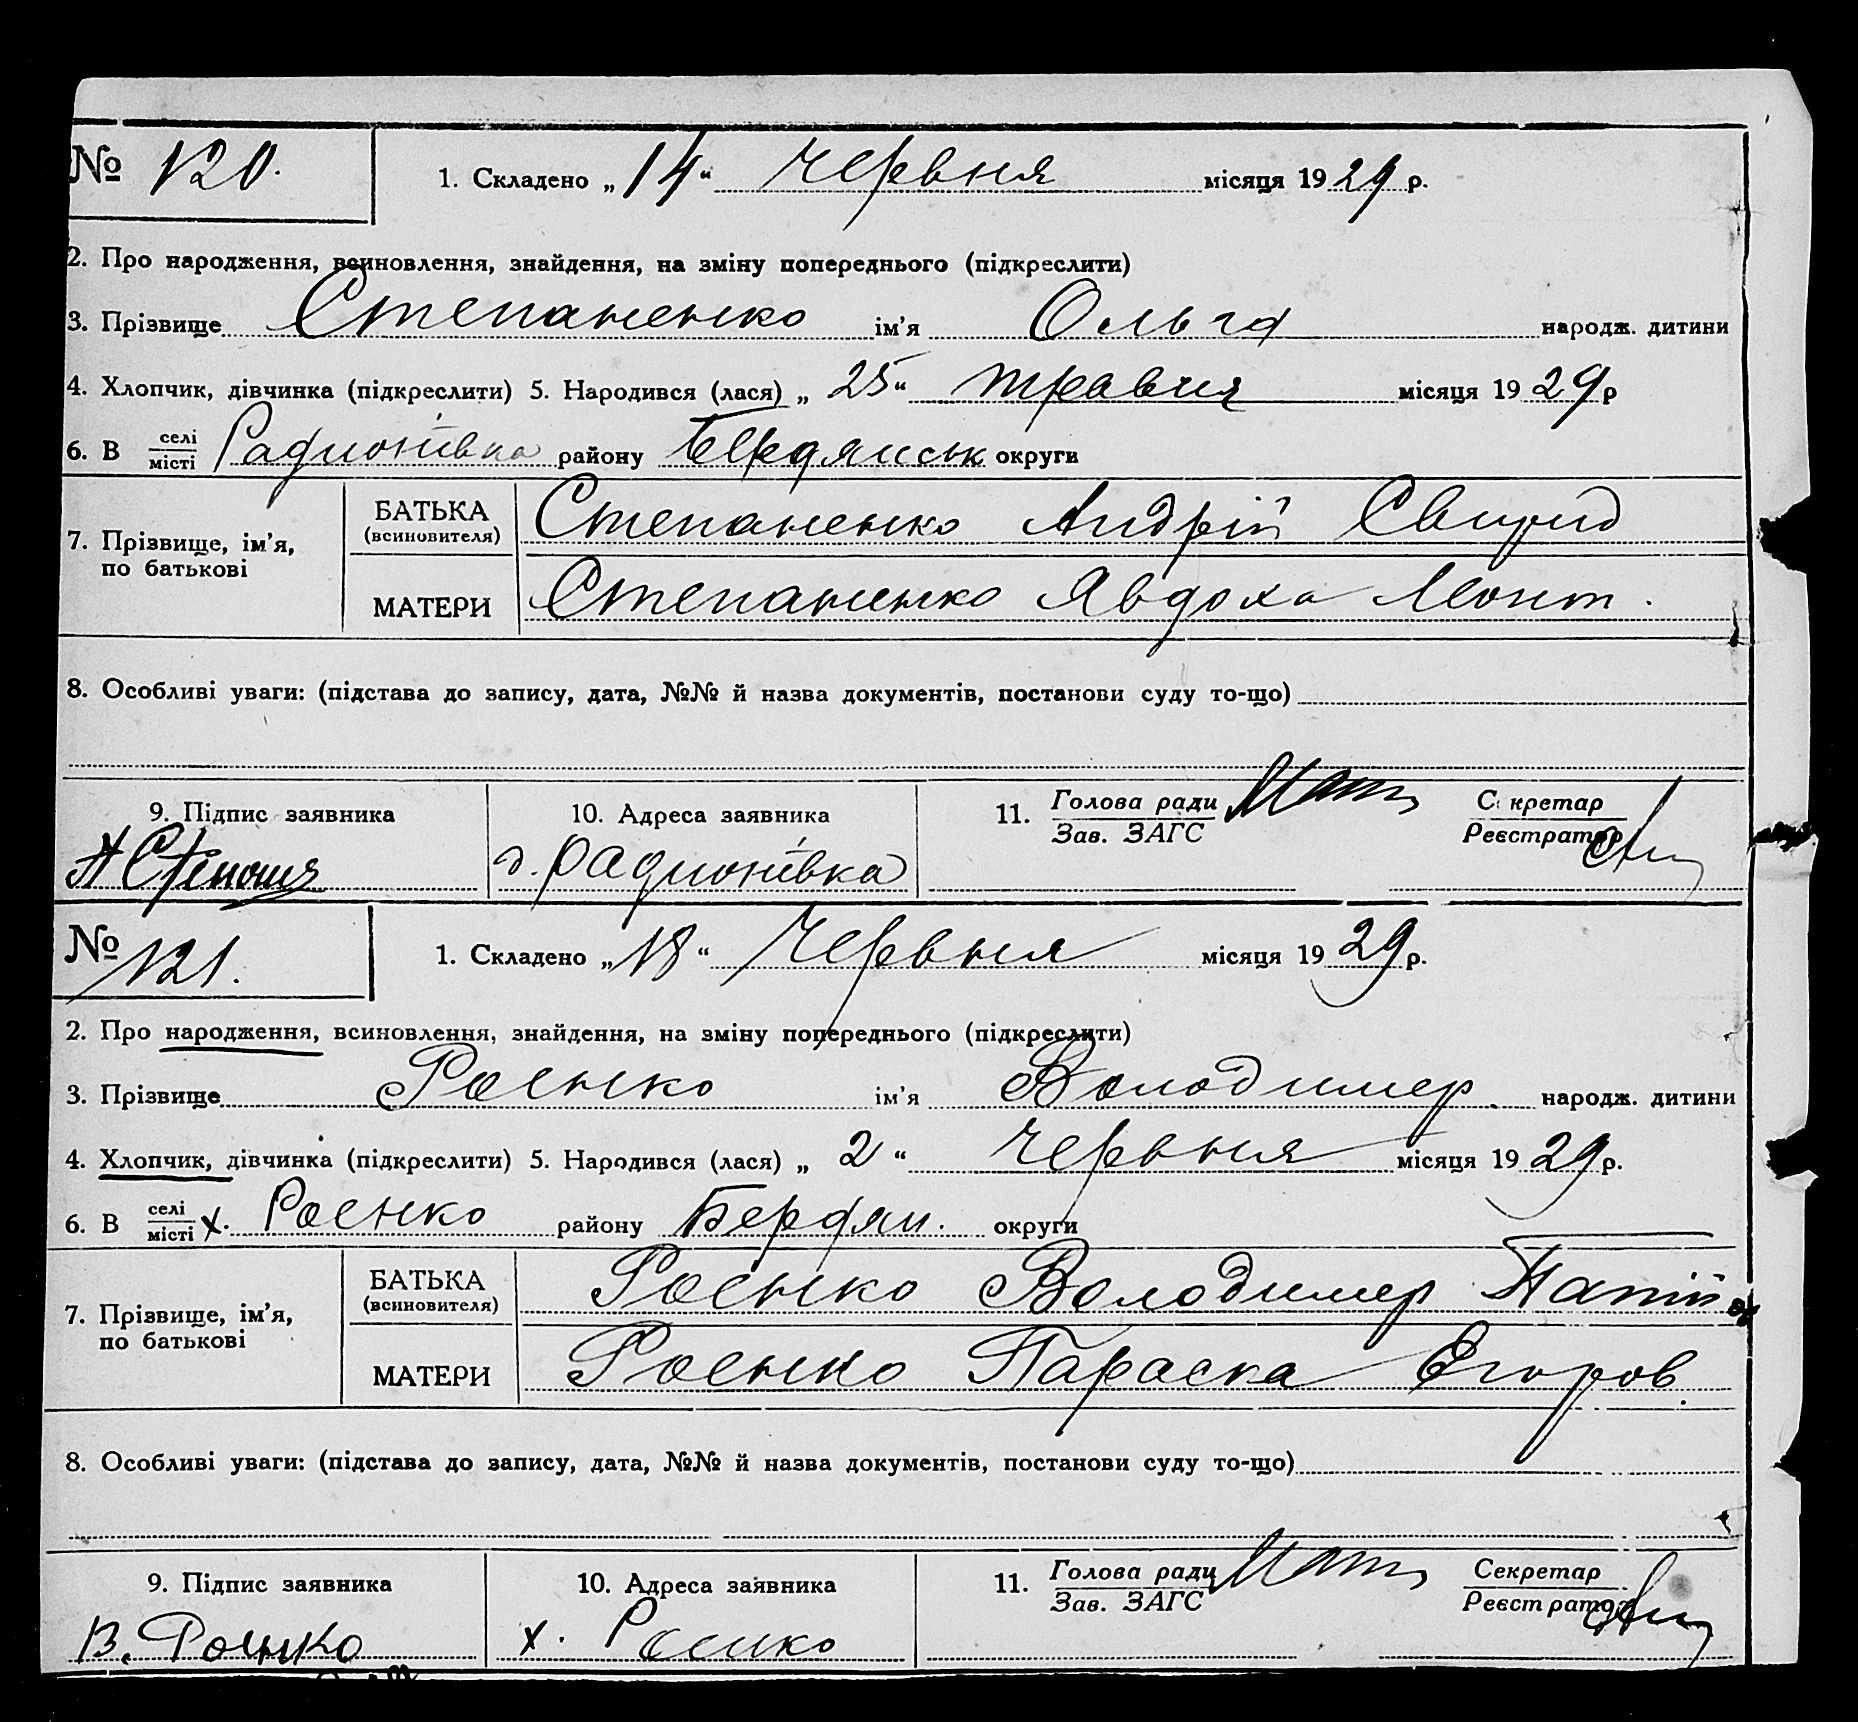 № 120. 1. Складено „14“ Червня місяця 1929 р.
2. Про народження, всиновлення, знайдення, на зміну попереднього (підкреслити)
3. Прізвище Степаненко ім’я Ольга народж. дитини
4. Хлопчик, дівчинка (підкреслити) 5. Народився (лася) „25“ травня місяця 1929 р
6. В селі/місті Радионівка району Бердянськ округи
7. Прізвище, ім’я, по батькові
БАТЬКА (всиновителя) Степаненко Андрій Свирид
МАТЕРИ Степаненко Явдоха Леонт.
8. Особливі уваги: (підстава до запису, дата, №№ й назва документів, постанови суду то-що)
9. Підпис заявника 10. Адреса заявника 11. Голова ради Секретар
Зав. ЗАГС Реєстратор
д. Радионівка
№ 121. 1. Складено „18“ Червня місяця 1929 р.
2. Про народження, всиновлення, знайдення, на зміну попереднього (підкреслити)
3. Прізвище Роенко ім’я Володимер народж. дитини
4. Хлопчик, дівчинка (підкреслити) 5. Народився (лася) „2“ червня місяця 1929 р.
6. В селі/місті х. Роенко району Бердян. округи
7. Прізвище, ім’я, по батькові
БАТЬКА (всиновителя) Роенко Володимер
МАТЕРИ Роенко Параска Егоров.
8. Особливі уваги: (підстава до запису, дата, №№ й назва документів, постанови суду то-що)
9. Підпис заявника 10. Адреса заявника 11. Голова ради Секретар
Зав. ЗАГС Реєстратор
В. Роенко х. Роенко